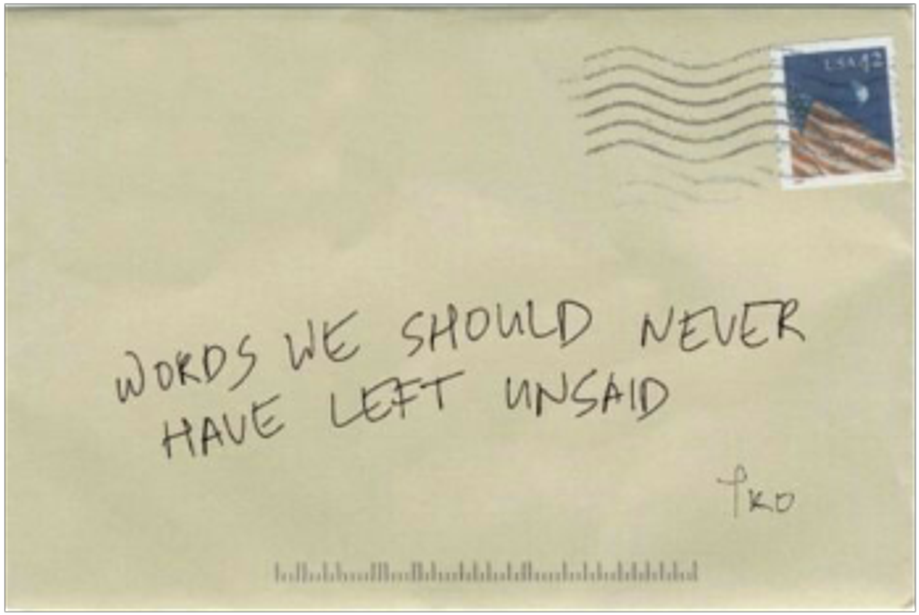 USA 42
WORDS WE SHOULD NEVER
HAVE LEFT UNSAID
TKO